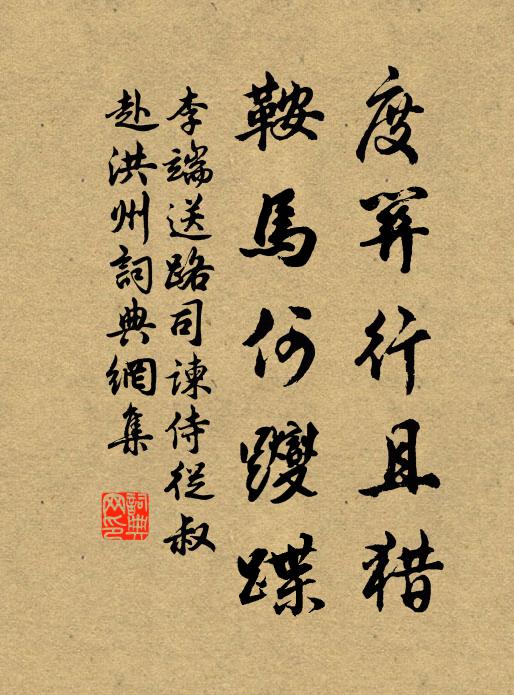 度関行且猎
鞍馬何躞蹀
李端送路司諫侍從叔
赴洪州詞典網集
詞典
网印